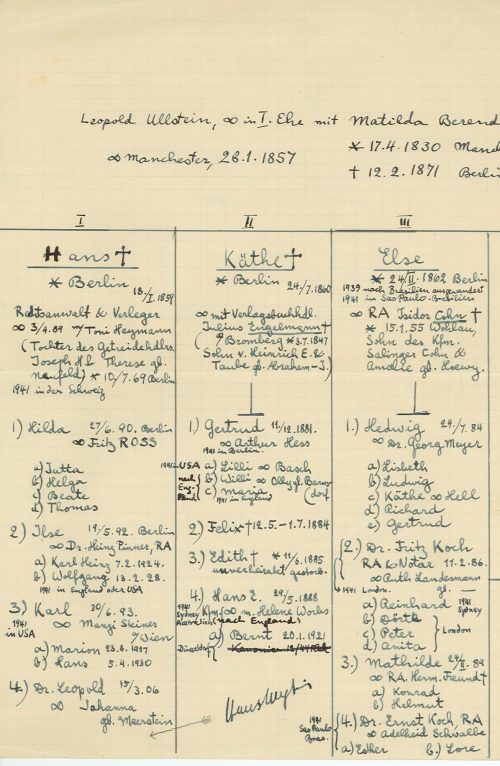 Leopold Ullstein, ∞ in I. Ehe mit Matilda Berend
∞ Manchester, 26.1.1857
* 17.4.1830 Manch
† 12.2.1871 Berlin
I
Hans †
* Berlin
18/I.1859
Rechtsanwalt & Verleger
∞ 3/4.89 m/ Toni Heymann
(Tochter des Getreidehdlrs.
Joseph H. & Therese gb.
Neufeld) * 10/7.69 Berlin
1941 in der Schweiz
1) Hilda 27/6.90. Berlin
∞ Fritz ROSS
a) Jutta
b) Helga
c) Beate
d) Thomas
2) Ilse 19/5.92. Berlin
∞ Dr. Heinz Pinner, RA
a) Karl Heinz 7.2.1924.
b) Wolfgang 13.2.28.
1941 in England oder USA
3) Karl 30/6.93.
1941 in USA
∞ Manzi Steiner
m/Wien
a) Marion
b) Hans 5.4.1930
4.) Dr. Leopold 15/3.06
∞ Johanna
gb. Meerstein
II
Käthe †
* Berlin 24/7.1860
∞ mit Verlagsbuchhdl.
Julius Engelmann †
(* Bromberg * 3.7.1847
Sohn v. Heinrich E. &
Taube gb. Abraham-J.)
1.) Gertrud 11/12.1881.
1941 in Berlin.
∞ Arthur Hess
1941 in USA a) Lilli ∞ Basch
nach England b) Willi ∞ Olly
c) Maria
1941 in England
2) Felix † 12.5.-1.7.1884
3.) Edith † * 11/6.1885
unverheiratet gestorb.
4.) Hans E. 29/5.1888
1941 Sydney Australien
Kfm. ∞ m. Helene Worbs
(nach England)
a) Bernt 20.1.1921
Düsseldorf
III
Else
* 24/II.1862 Berlin
1939 nach Brasilien ausgewandert
1941 in Sao Paulo-Brasilien
∞ RA Isidor Cohn †
* 15.1.55 Wohlau,
Sohn des Kfm.
Salinger Cohn &
Amalie gb. Loewy.
1.) Hedwig 24./7.84
∞ Dr. Georg Meyer
a) Lisbeth
b) Ludwig
c) Käthe ∞ Hell
d) Richard
e) Gertrud
2.) Dr. Fritz Koch
RA & Notar 11.2.86.
∞ Anth. Landesmann
1941 London. gb. —
a) Reinhard 1941 Sydney
b) Dörth
c) Peter
d) Anita
London
3.) Mathilde 24/II.89
∞ RA. Herm. Freund †
a) Konrad
b) Helmut
1941 Sao Paulo Bras.
4.) Dr. Ernst Koch, RA
∞ Adelheid Schwalbe
a) Esther b.) Lore